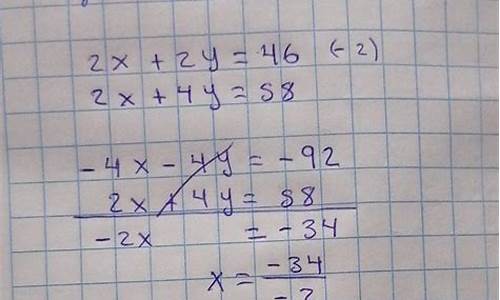 2x + 2y = 46 (-2)
2x + 4y = 58
-4x - 4y = -92
2x + 4y = 58
-2x = -34
x = -34
-2